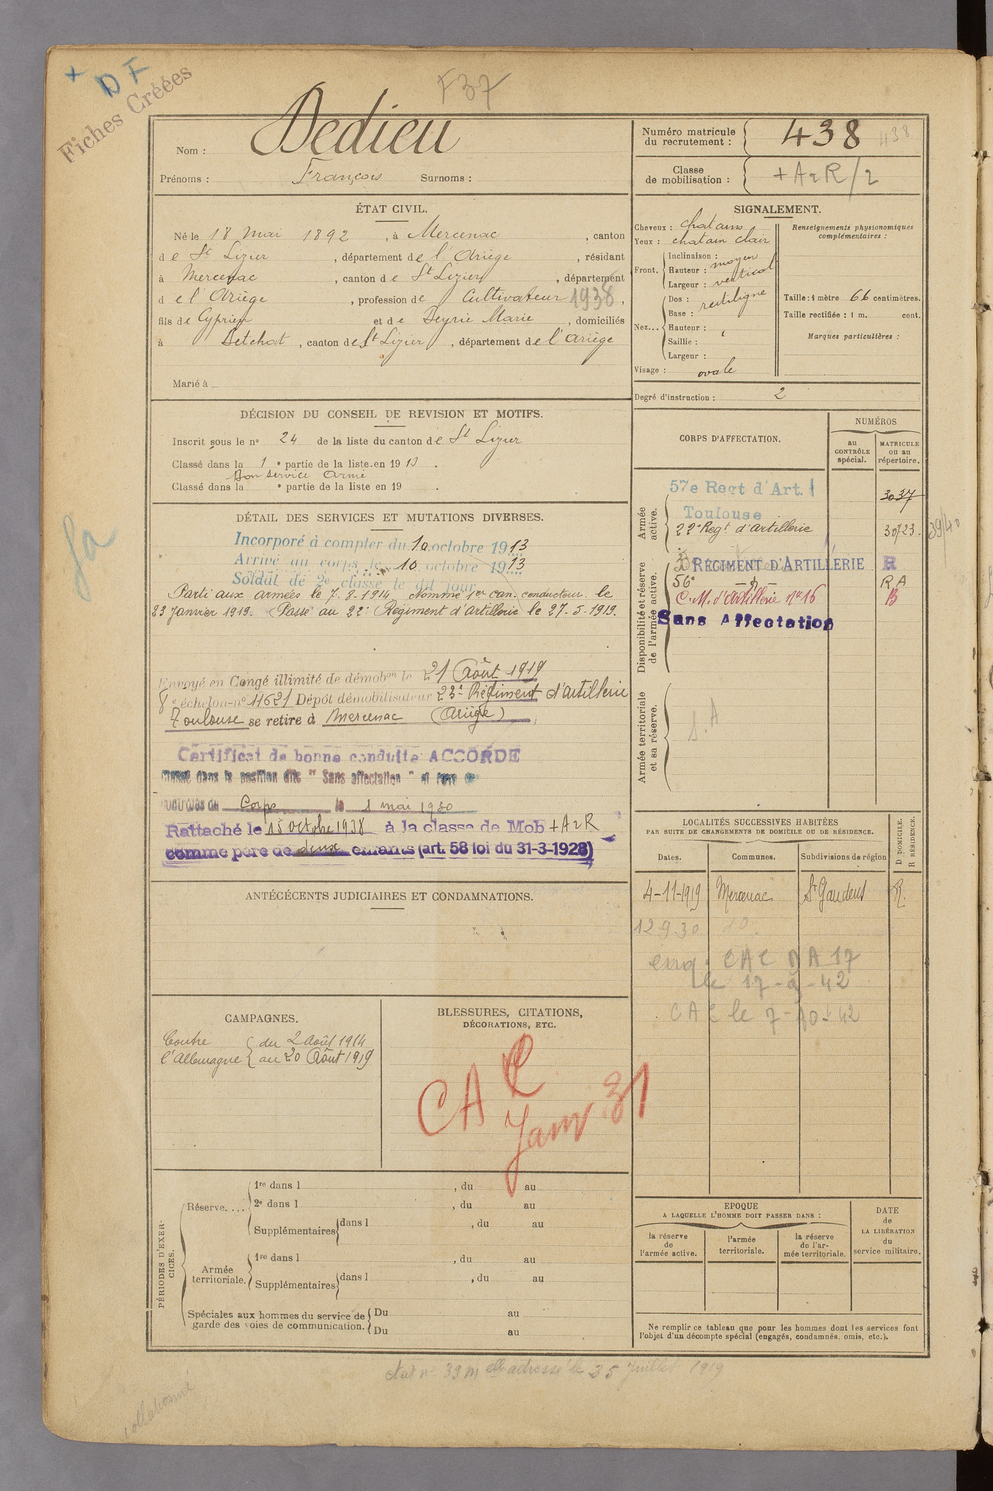 + D F
Fiches Créées
F37
Nom : Dedieu
Prénoms : François Surnoms :
Numéro matricule du recrutement : 438 438
Classe de mobilisation : + A 2 R/2
ÉTAT CIVIL.
Né le 18 Mai 1892, à Mercenac, canton
de St Lizier, département de l'Ariège, résidant
à Mercenac, canton de St Lizier, département
de l'Ariège, profession de Cultivateur 1938,
fils de Cyprien et de Deyrie Marie, domiciliés
à Betchat, canton de St Lizier, département de l'Ariège
Marié à
SIGNALEMENT.
Cheveux : chatains
Yeux : chatain clair
Front. Inclinaison : moyen
Hauteur : vertical
Largeur :
Nez... Dos : rectiligne
Base :
Hauteur :
Saillie :
Largeur :
Visage : ovale
Renseignements physionomiques complémentaires :
Taille : 1 mètre 66 centimètres.
Taille rectifiée : 1 m. cent.
Marques particulières :
Degré d'instruction : 2
DÉCISION DU CONSEIL DE REVISION ET MOTIFS.
Inscrit sous le n° 24 de la liste du canton de St Lizier
Classé dans la 1e partie de la liste en 1913.
Bon service armé
Classé dans la e partie de la liste en 19 .
DÉTAIL DES SERVICES ET MUTATIONS DIVERSES.
Incorporé à compter du 10 octobre 1913
Arrivé au corps le 10 octobre 1913
Soldat de 2e classe le dit jour
Parti aux armées le 7.8.1914. Nommé 1er can. conducteur le
23 Janvier 1919. Passé au 22e Régiment d'artillerie le 27.5.1919.
Envoyé en Congé illimité de démobon le 21 Août 1919
8e échelon n° 11621 Dépôt démobilisateur 23e Régiment d'artillerie
Toulouse se retire à Mercenac (Ariège)
Certificat de bonne conduite ACCORDÉ
dans la position dite "Sans affectation" et rayé des
contrôles du Corps le 1 mai 1930
Rattaché le 15 octobre 1938 à la classe de Mob + A 2 R
comme père de deux enfants (art. 58 loi du 31-3-1928)
CORPS D'AFFECTATION.
NUMÉROS
au CONTRÔLE spécial.
MATRICULE ou au répertoire.
Armée active.
57e Regt d'Art. 3037
Toulouse
22e Regt d'artillerie 30723
Disponibilité et réserve de l'armée active.
RÉGIMENT D'ARTILLERIE R
56e R A
C.M. d'Artillerie n° 16 B
Sans Affectation
Armée territoriale et sa réserve.
S.A
LOCALITÉS SUCCESSIVES HABITÉES
PAR SUITE DE CHANGEMENTS DE DOMICILE OU DE RÉSIDENCE.
D DOMICILE. R RÉSIDENCE.
Dates. Communes. Subdivisions de région
4-11-1919 Mercenac St Gaudens R.
12 9 30 do.
CAC DA 17
le 17-9-42
CAC le 7-10-42
ANTÉCÉCENTS JUDICIAIRES ET CONDAMNATIONS.
CAMPAGNES.
Contre { du 2 Août 1914
l'Allemagne { au 20 Août 1919
BLESSURES, CITATIONS, DÉCORATIONS, ETC.
CAC
Janv 31
PÉRIODES D'EXERCICES.
Réserve.... 1re dans l , du au
2e dans l , du au
Supplémentaires dans l , du au
Armée territoriale. 1re dans l , du au
Supplémentaires dans l , du au
Spéciales aux hommes du service de garde des voies de communication. Du au
Du au
EPOQUE
A LAQUELLE L'HOMME DOIT PASSER DANS :
la réserve de l'armée active.
l'armée territoriale.
la réserve de l'armée territoriale.
DATE de LA LIBÉRATION du service militaire.
Ne remplir ce tableau que pour les hommes dont les services font
l'objet d'un décompte spécial (engagés, condamnés, omis, etc.).
Juillet 1919